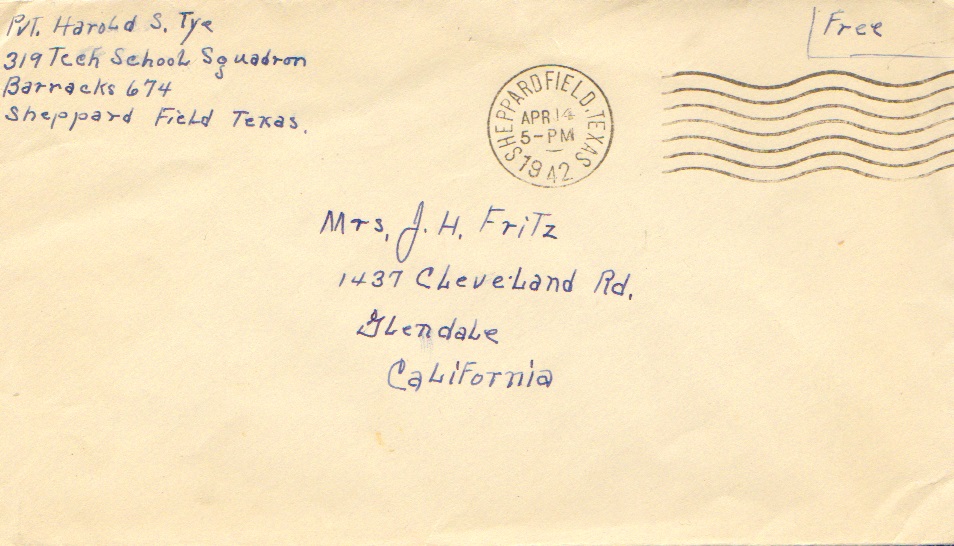 Pvt. Harold S. Tye
319 Tech School Squadron
Barracks 674
Sheppard Field Texas.
Free
SHEPPARD FIELD, TEXAS
APR 14
5-PM
1942
Mrs. J. H. Fritz
1437 Cleveland Rd.
Glendale
California